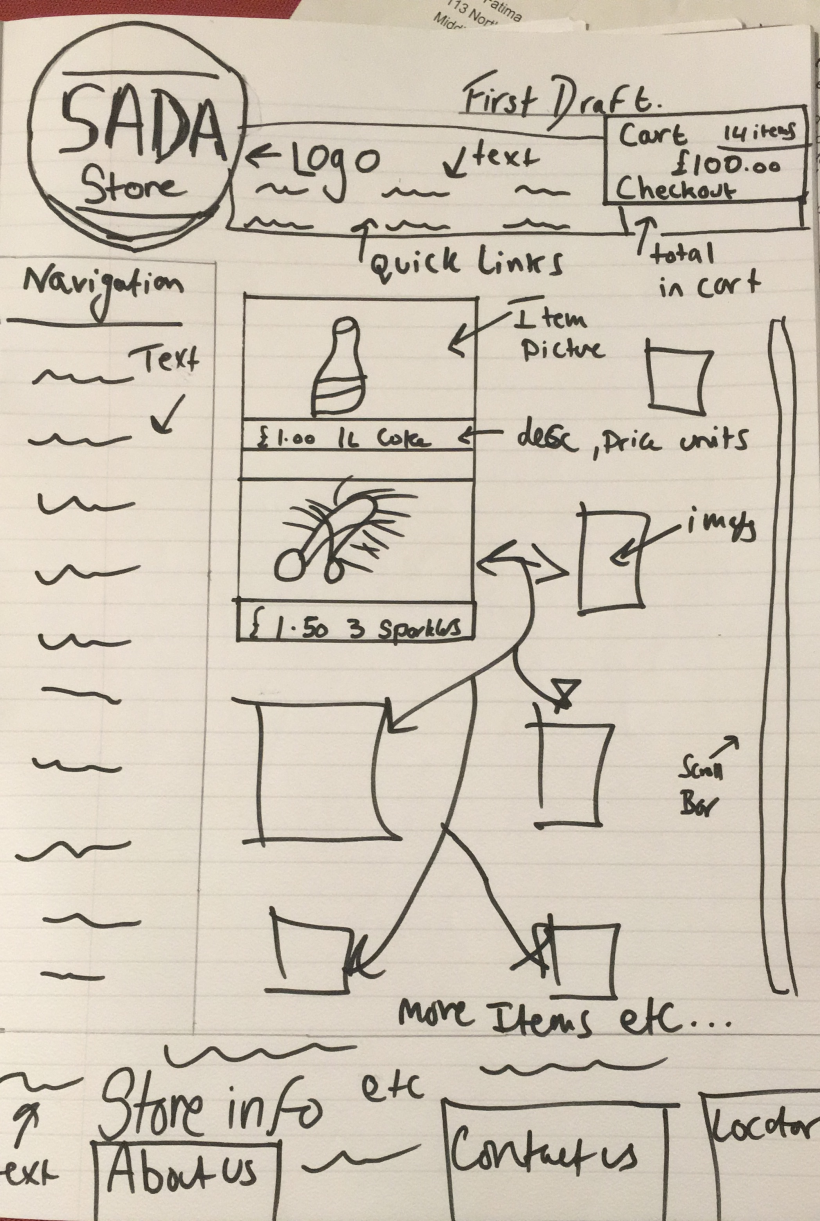 atima
113 Nort
Midd
First Draft.
SADA
Store
← Logo
text
Cart 14 items
£100.00
Checkout
Quick Links
total
in cart
Navigation
Text
Item
Picture
£1.00 1L Coke
desc, Price units
imgs
£1.50 3 Sparklers
Scroll
Bar
More Items etc...
Store info etc
ext
About us
Contact us
Locator